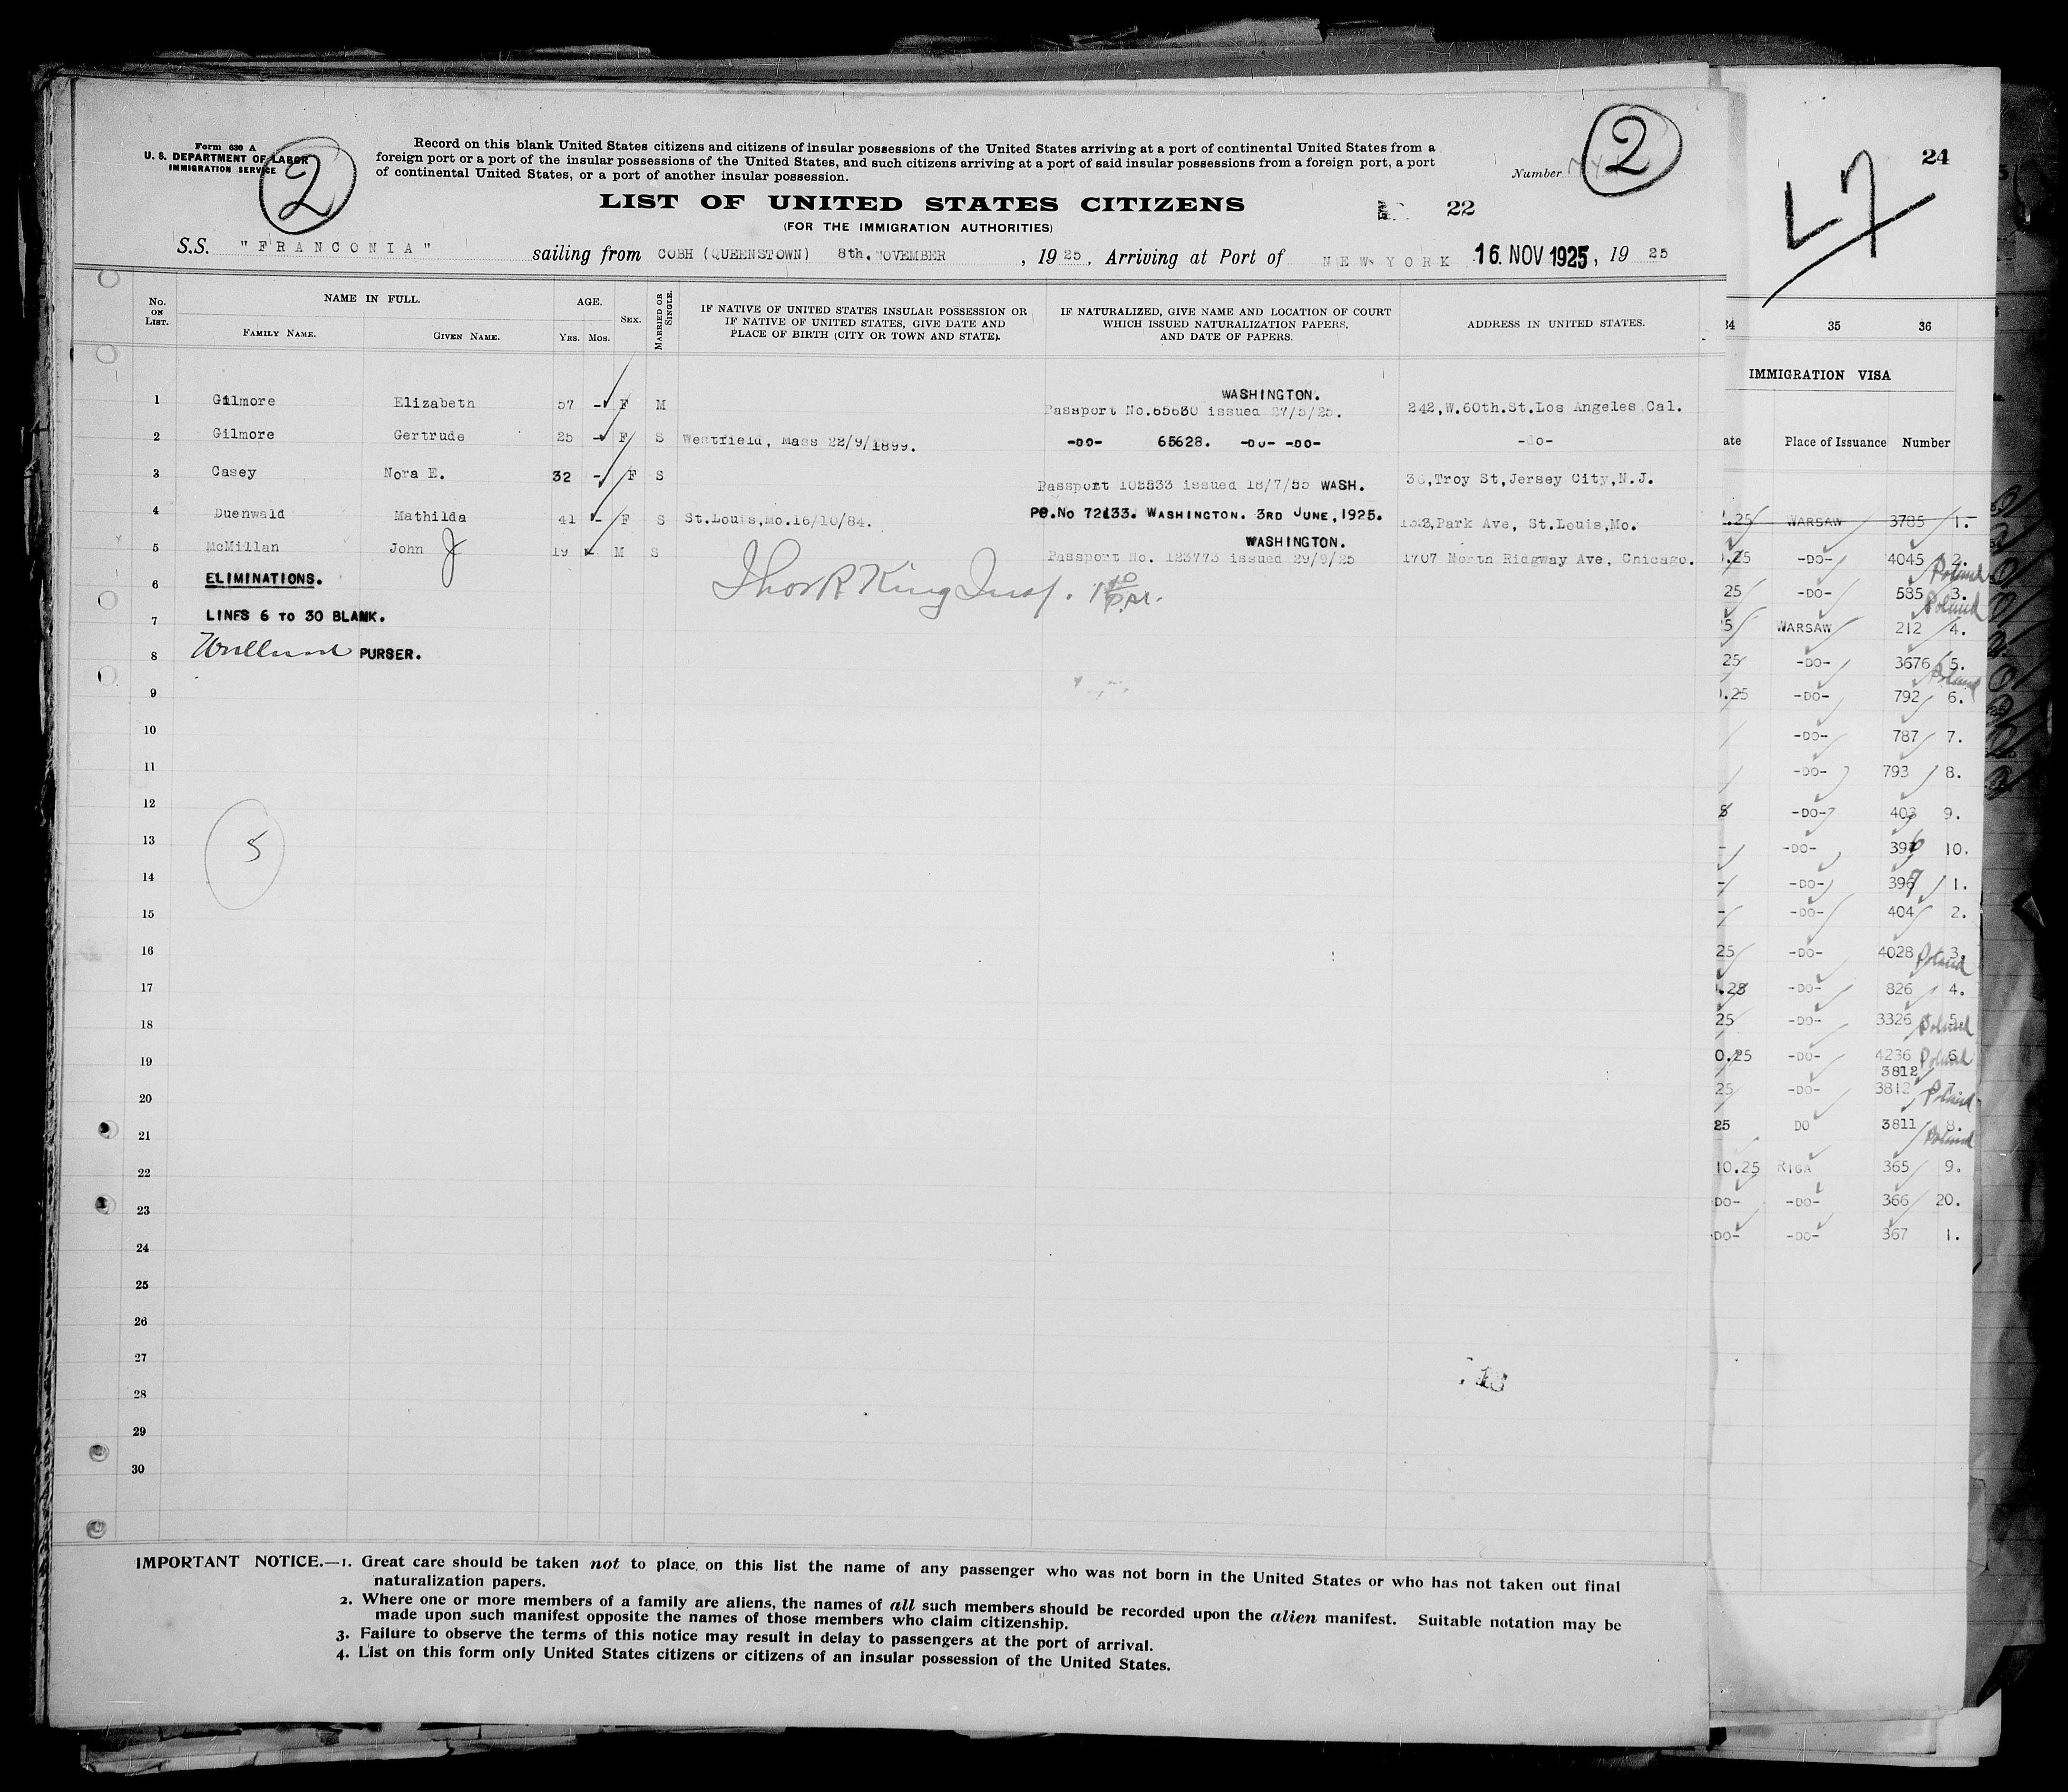 Form 630 A
U. S. DEPARTMENT OF LABOR
IMMIGRATION SERVICE
2
Record on this blank United States citizens and citizens of insular possessions of the United States arriving at a port of continental United States from a
foreign port or a port of the insular possessions of the United States, and such citizens arriving at a port of said insular possessions from a foreign port, a port
of continental United States, or a port of another insular possession.
Number
2
LIST OF UNITED STATES CITIZENS
22
(FOR THE IMMIGRATION AUTHORITIES)
S.S. "FRANCONIA" sailing from COBH (QUEENSTOWN) 8th. NOVEMBER , 1925, Arriving at Port of NEW YORK 16. NOV 1925, 19 25
No. ON LIST.
NAME IN FULL.
FAMILY NAME. GIVEN NAME.
AGE.
YRS. MOS.
SEX.
MARRIED OR SINGLE.
IF NATIVE OF UNITED STATES INSULAR POSSESSION OR
IF NATIVE OF UNITED STATES, GIVE DATE AND
PLACE OF BIRTH (CITY OR TOWN AND STATE).
IF NATURALIZED, GIVE NAME AND LOCATION OF COURT
WHICH ISSUED NATURALIZATION PAPERS,
AND DATE OF PAPERS.
ADDRESS IN UNITED STATES.
WASHINGTON.
1 Gilmore Elizabeth 57 - F M Passport No. issued 27/5/25. 242,W.60th.St.Los Angeles Cal.
2 Gilmore Gertrude 25 - F S Westfield, Mass 22/9/1899. -DO- 65628. -DO- -DO- -do-
3 Casey Nora E. 32 - F S Passport issued 18/7/ WASH. Troy St,Jersey City,N.J.
4 Duenwald Mathilda 41 - F S St.Louis,Mo.16/10/84. No WASHINGTON. 3RD JUNE,1925. Park Ave, St.Louis,Mo.
WASHINGTON.
5 McMillan John J 19 - M S Passport No. 123773 issued 29/9/25 1707 North Ridgway Ave, Chicago.
6 ELIMINATIONS.
Thos R King Insp.
7 LINES 6 TO 30 BLANK.
8 PURSER.
9
10
11
12
13
5
14
15
16
17
18
19
20
21
22
23
24
25
26
27
28
29
30
IMPORTANT NOTICE.—1. Great care should be taken not to place on this list the name of any passenger who was not born in the United States or who has not taken out final
naturalization papers.
2. Where one or more members of a family are aliens, the names of all such members should be recorded upon the alien manifest. Suitable notation may be
made upon such manifest opposite the names of those members who claim citizenship.
3. Failure to observe the terms of this notice may result in delay to passengers at the port of arrival.
4. List on this form only United States citizens or citizens of an insular possession of the United States.
24
34 35 36
IMMIGRATION VISA
ate Place of Issuance Number
.25 WARSAW 3785 1.
.25 -DO- 4045 2.
Poland
25 -DO- 585 3.
Poland
5 WARSAW 212 4.
25 -DO- 3676 5.
Poland
.25 -DO- 792 6.
-DO- 787 7.
-DO- 793 8.
5 -DO- 403 9.
- -DO- 10.
- -DO- 1.
- -DO- 404 2.
25 -DO- 4028 3.
Poland
.25 -DO- 826 4.
25 -DO- 3326 5.
Poland
0.25 -DO- 4236 6.
Poland
3812
25 -DO- 3812 7.
Poland
25 DO 3811 8.
Poland
10.25 RIGA 365 9.
DO- -DO- 366 20.
DO- -DO- 367 1.